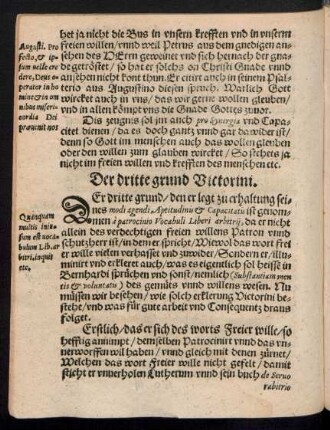 het ja nicht die Bus in vnsern krefften vnd in vnserm
freien willen / vnnd weil Petrus aus dem gnedigen an-
sehen des HErrn geweinet vnd sich hernach der gna-
de getröstet / so hat er solchs on Christi Gnade vnnd
ansehen nicht kont thun. Er citirt auch in seinem Psal-
terio aus Augustino diesen spruch. Warlich Gott
wircket auch in vns / das wir gerne wollen gleuben /
vnd in allen kömpt vns die Gnade Gottes zuuor.
Augusti. Pro
fecto, & ip-
sum uelle cre
dere, Deus o-
peratur in ho
mine & in om
nibus miseri-
cordia Dei
præuenit nos
Dis zeugnis sol jm auch pro Synergia vnd Capa-
citet dienen / da es doch gantz vnnd gar dawider ist /
denn so Gott im menschen auch das wollen gleuben
oder den willen zum glauben wircket / So stehets ja
nicht im freien willen vnd krefften des menschen etc.
Der dritte grund Victorini.
Der dritte grund / den er legt zu erhaltung sei-
nes modi agendi, Aptitudinis & Capacitatis ist genom-
men à patrocinio Vocabuli Liberi arbitrij, da er nicht
allein des verdechtigen freien willens Patron vnnd
schutzherr ist / in dem er spricht / Wiewol das wort frei
er wille vielen verhasset vnd zuwider / Sondern er / illu-
minirt vnd erkleret auch / was es eigentlich sol heissen in
Bernhardi sprüchen vnd sonst / nemlich (Substantiam men
tis & voluntatis) des gemüts vnnd willens wesen. Nu
müssen wir besehen / wie solch erklerung Victorini be-
stehe / vnd was für gute arbeit vnd Consequentz draus
folget.
Quinquam
multis inui-
sum est uoca
bulum Lib. ar
bitrij, inquit
etc.
Erstlich / das er sich des worts Freier wille / so
hefftig annimpt / demselben Patrocinirt vnnd das vn-
uerworffen wil haben / vnnd gleich mit denen zürnet /
Welchen das wort Freier wille nicht gefelt / damit
sticht er vnuerholen Lutherum vnnd sein buch de Seruo
rabitrio